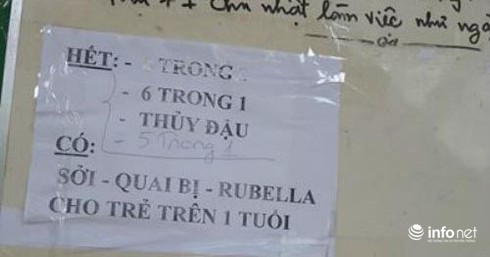 Thứ 7 + Chủ nhật làm việc như ngà
HẾT: - TRONG
- 6 TRONG 1
- THỦY ĐẬU
- 5 Trong 1
CÓ:
SỞI - QUAI BỊ - RUBELLA
CHO TRẺ TRÊN 1 TUỔI
infonet